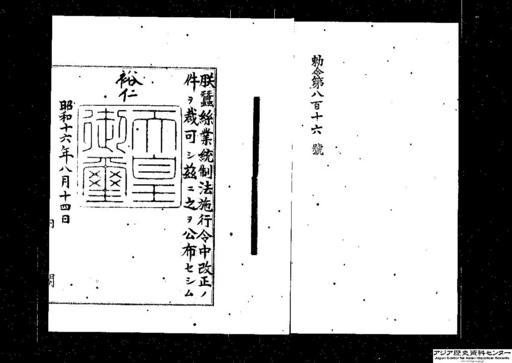 勅令第八百十六號
朕蠶絲業統制法施行令中改正ノ
件ヲ裁可シ茲ニ之ヲ公布セシム
裕仁
天皇御璽
昭和十六年八月十四日
内閣
アジア歴史資料センター
Japan Center for Asian Historical Records